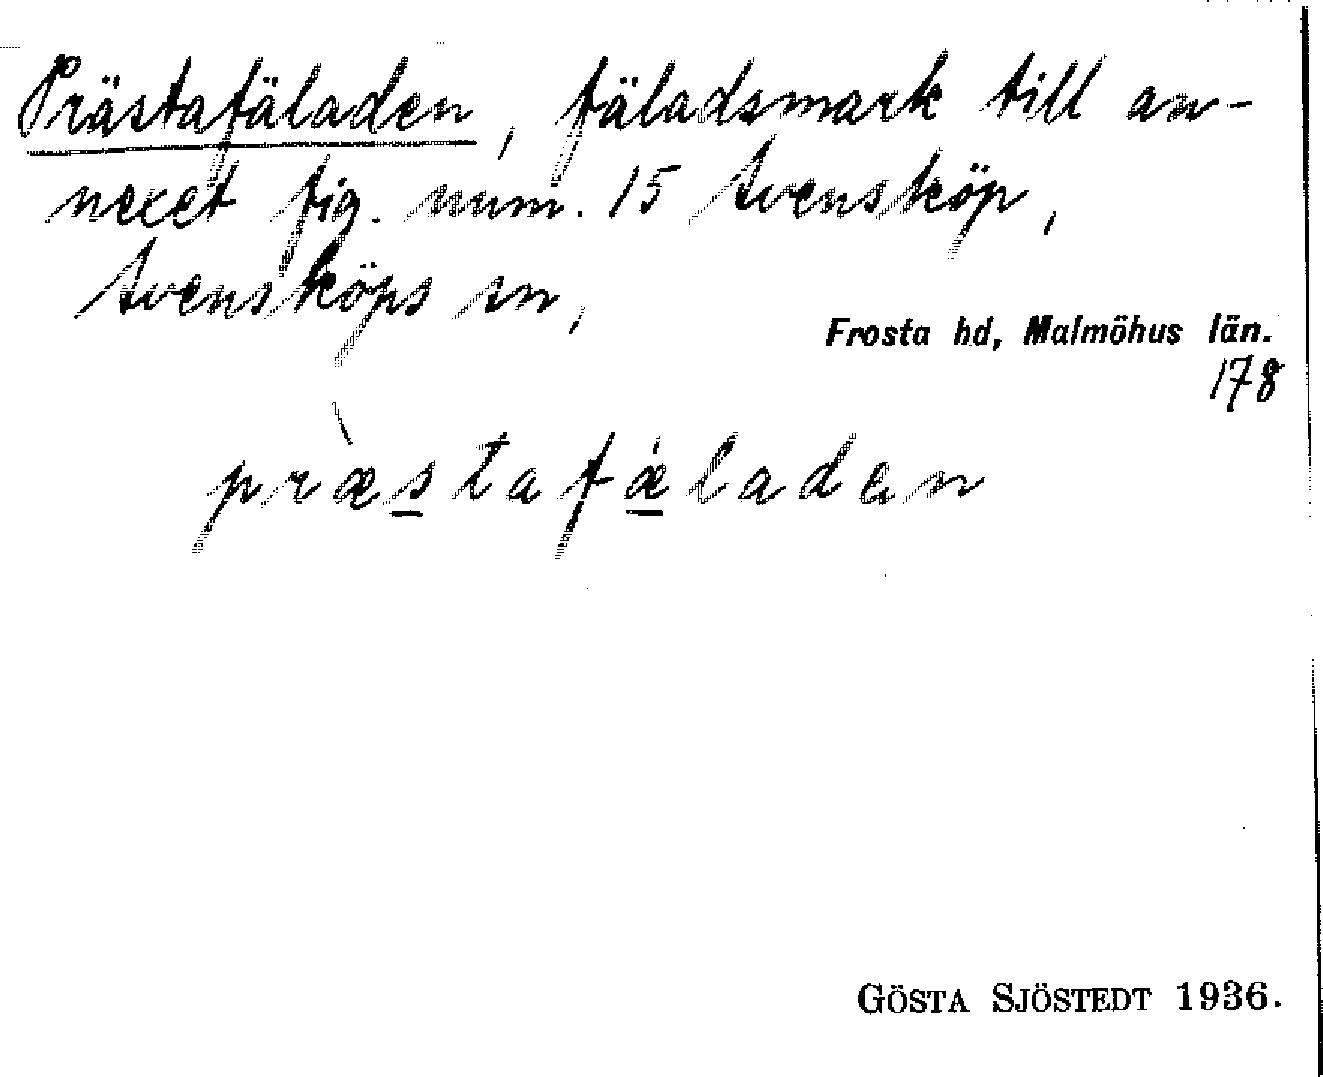 Prästafäladen, fäladsmark till an-
nexet fig. num. 15 Svensköp,
Svensköps sn,
Frosta hd, Malmöhus län.
178
præstafæladen
GÖSTA SJÖSTEDT 1936.